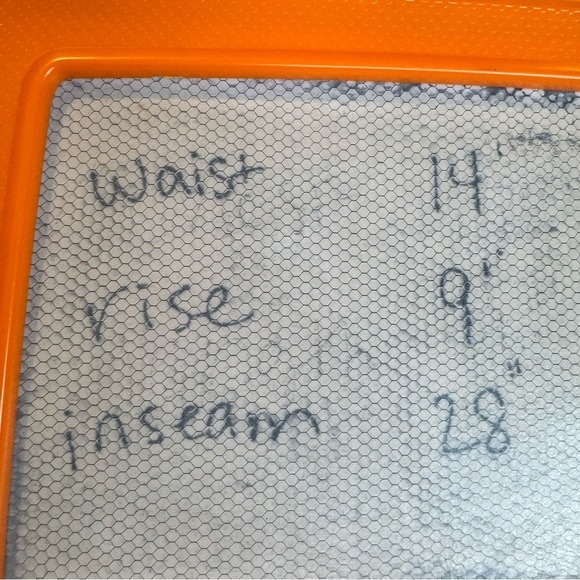 waist 14"
rise 9"
inseam 28"